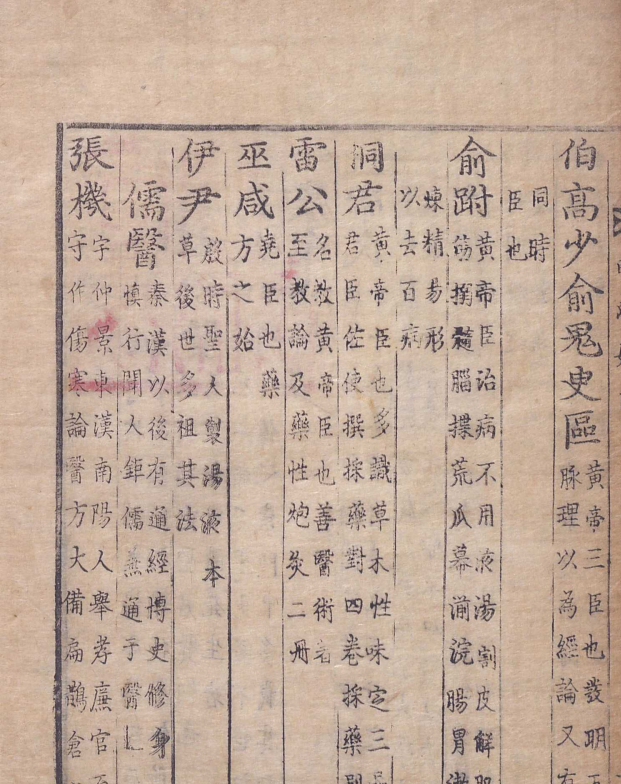 伯高少俞鬼臾區
黃帝三臣也發明
脉理以為經論又有
同時
臣也
俞跗
黃帝臣治病不用液湯割皮解
筋搦髓腦揲荒瓜幕湔浣腸胃
煉精易形
以去百病
洞君
黃帝臣也多識草木性味定三
君臣佐使撰採藥對四卷採藥
雷公
名教黃帝臣也善醫術著
至教論及藥性炮灸二冊
巫咸
堯臣也藥
方之始
伊尹
殷時聖人製湯液本
草後世多祖其法
儒醫
秦漢以後有通經博史修身
慎行聞人鉅儒兼通于醫
張機
字仲景東漢南陽人舉孝廉官
守作傷寒論醫方大備扁鵲倉